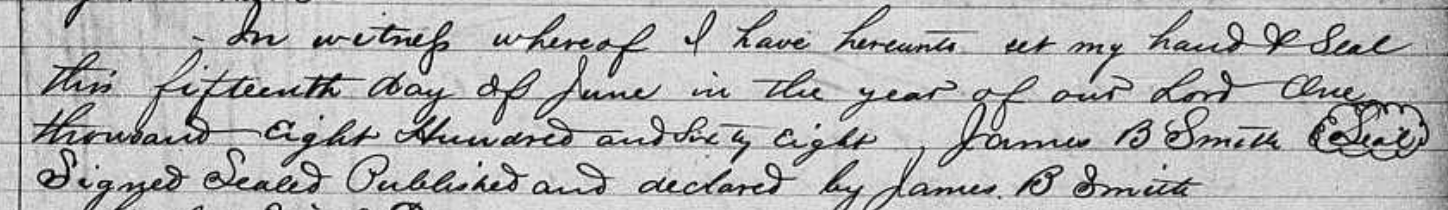 - In witness whereof I have hereunto set my hand & Seal
this fifteenth day of June in the year of our Lord One
thousand Eight Hundred and Sixty Eight, James B Smith Seal
Signed Sealed Published and declared by James. B Smith